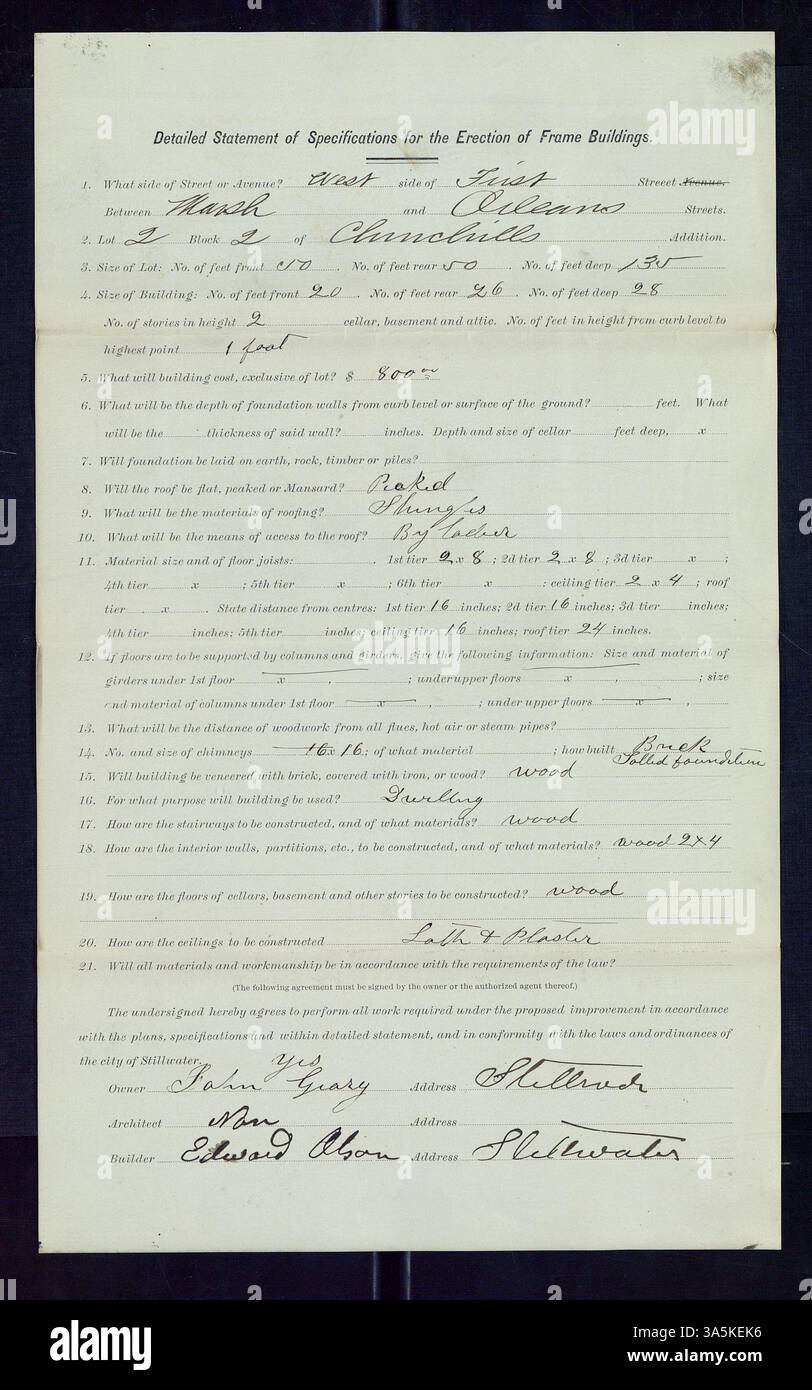 Detailed Statement of Specifications for the Erection of Frame Buildings.
1. What side of Street or Avenue? West side of First Streeet Avenue.
Between Marsh and Orleans Streets.
2. Lot 2 Block 2 of Churchills Addition.
3. Size of Lot: No. of feet front 50. No. of feet rear 50. No. of feet deep 135
4. Size of Building: No. of feet front 20. No. of feet rear 26. No. of feet deep 28
No. of stories in height 2 cellar, basement and attic. No. of feet in height from curb level to
highest point 1 foot
5. What will building cost, exclusive of lot? $ 800 00
6. What will be the depth of foundation walls from curb level or surface of the ground? feet. What
will be the thickness of said wall? inches. Depth and size of cellar feet deep, x
7. Will foundation be laid on earth, rock, timber or piles?
8. Will the roof be flat, peaked or Mansard? Peaked
9. What will be the materials of roofing? Shingles
10. What will be the means of access to the roof? By lader
11. Material size and of floor joists: 1st tier 2 x 8; 2d tier 2 x 8; 3d tier x ;
4th tier x ; 5th tier x ; 6th tier x : ceiling tier 2 x 4; roof
tier x . State distance from centres: 1st tier 16 inches; 2d tier 16 inches; 3d tier inches;
4th tier inches; 5th tier inches; ceiling tier 16 inches; roof tier 24 inches.
12. If floors are to be supported by columns and girders, give the following information: Size and material of
girders under 1st floor x , ; under upper floors x , ; size
and material of columns under 1st floor x , ; under upper floors x ,
13. What will be the distance of woodwork from all flues, hot air or steam pipes?
14. No. and size of chimneys 16 x 16; of what material ; how built Brick
Sollid foundation
15. Will building be veneered with brick, covered with iron, or wood? wood
16. For what purpose will building be used? Dwelling
17. How are the stairways to be constructed, and of what materials? wood
18. How are the interior walls, partitions, etc., to be constructed, and of what materials? wood 2x4
19. How are the floors of cellars, basement and other stories to be constructed? wood
20. How are the ceilings to be constructed Lath & Plaster
21. Will all materials and workmanship be in accordance with the requirements of the law?
(The following agreement must be signed by the owner or the authorized agent thereof.)
The undersigned hereby agrees to perform all work required under the proposed improvement in accordance
with the plans, specifications and within detailed statement, and in conformity with the laws and ordinances of
the city of Stillwater. yes
Owner John Geary Address
Architect Non Address
Builder Edward Olson Address Stillwater
alamy
Image ID: 3A5KEK6
www.alamy.com